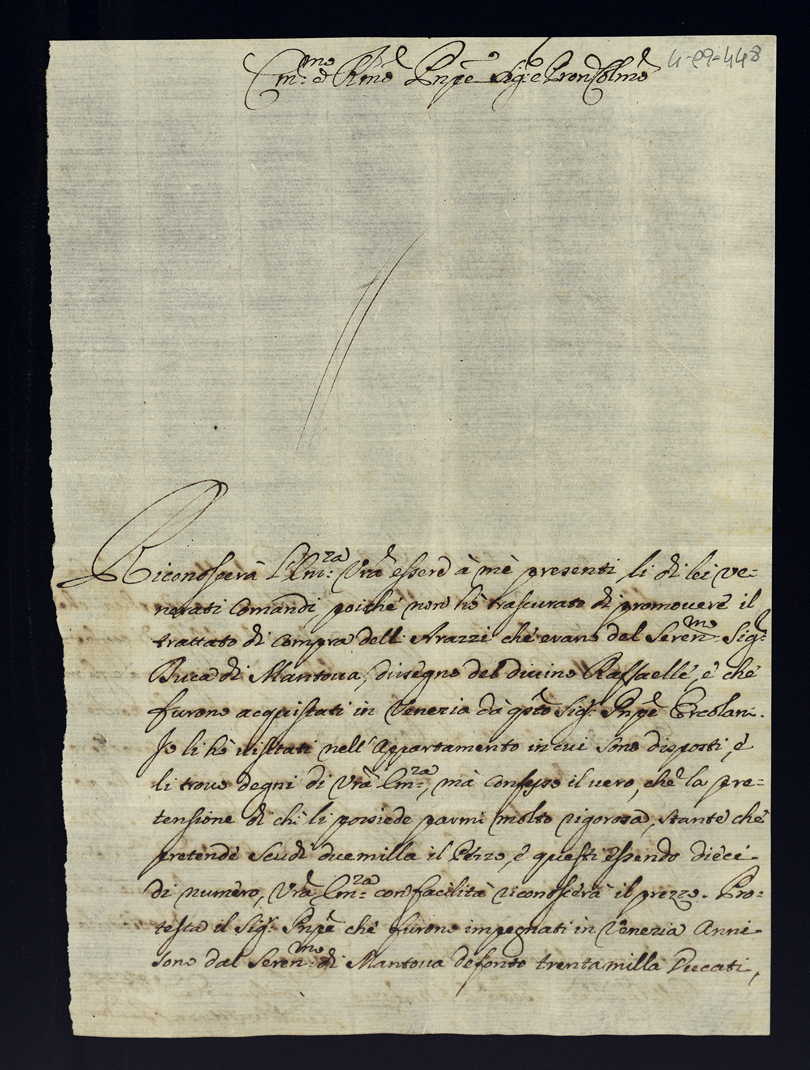 4-09-448
Em:mo e Rmo Pnpe Sig:e e Pron Colmo
Riconoscerà l'Em:za Vra essere à mè presenti li di lei ve-
nerati Comandi poiche non hò trascurato di promovere il
trattato di Compra delli Arazzi che erano del Seren:mo Sig:r
Duca di Mantova, dissegno del divino Raffaelle, è che
furono acquistati in Venezia dà qsto Sig:r Pnpe Ercolani.
Io li hò visitati nell'Appartamento in cui sono disposti, è
li trovo degni di Vra Em:za, mà confesso il vero, che la pre-
tensione di chi li possiede parmi molto rigorosa, stante che
pretende Scudi duemilla il Pezzo, è questi essendo dieci
di numero, Vra Em:za con facilità riconoscerà il prezzo. Pro-
testa il Sig:r Pnpe che furono impegnati in Venezia Anni
sono dal Seren:mo di Mantova defonto trentamilla Ducati,